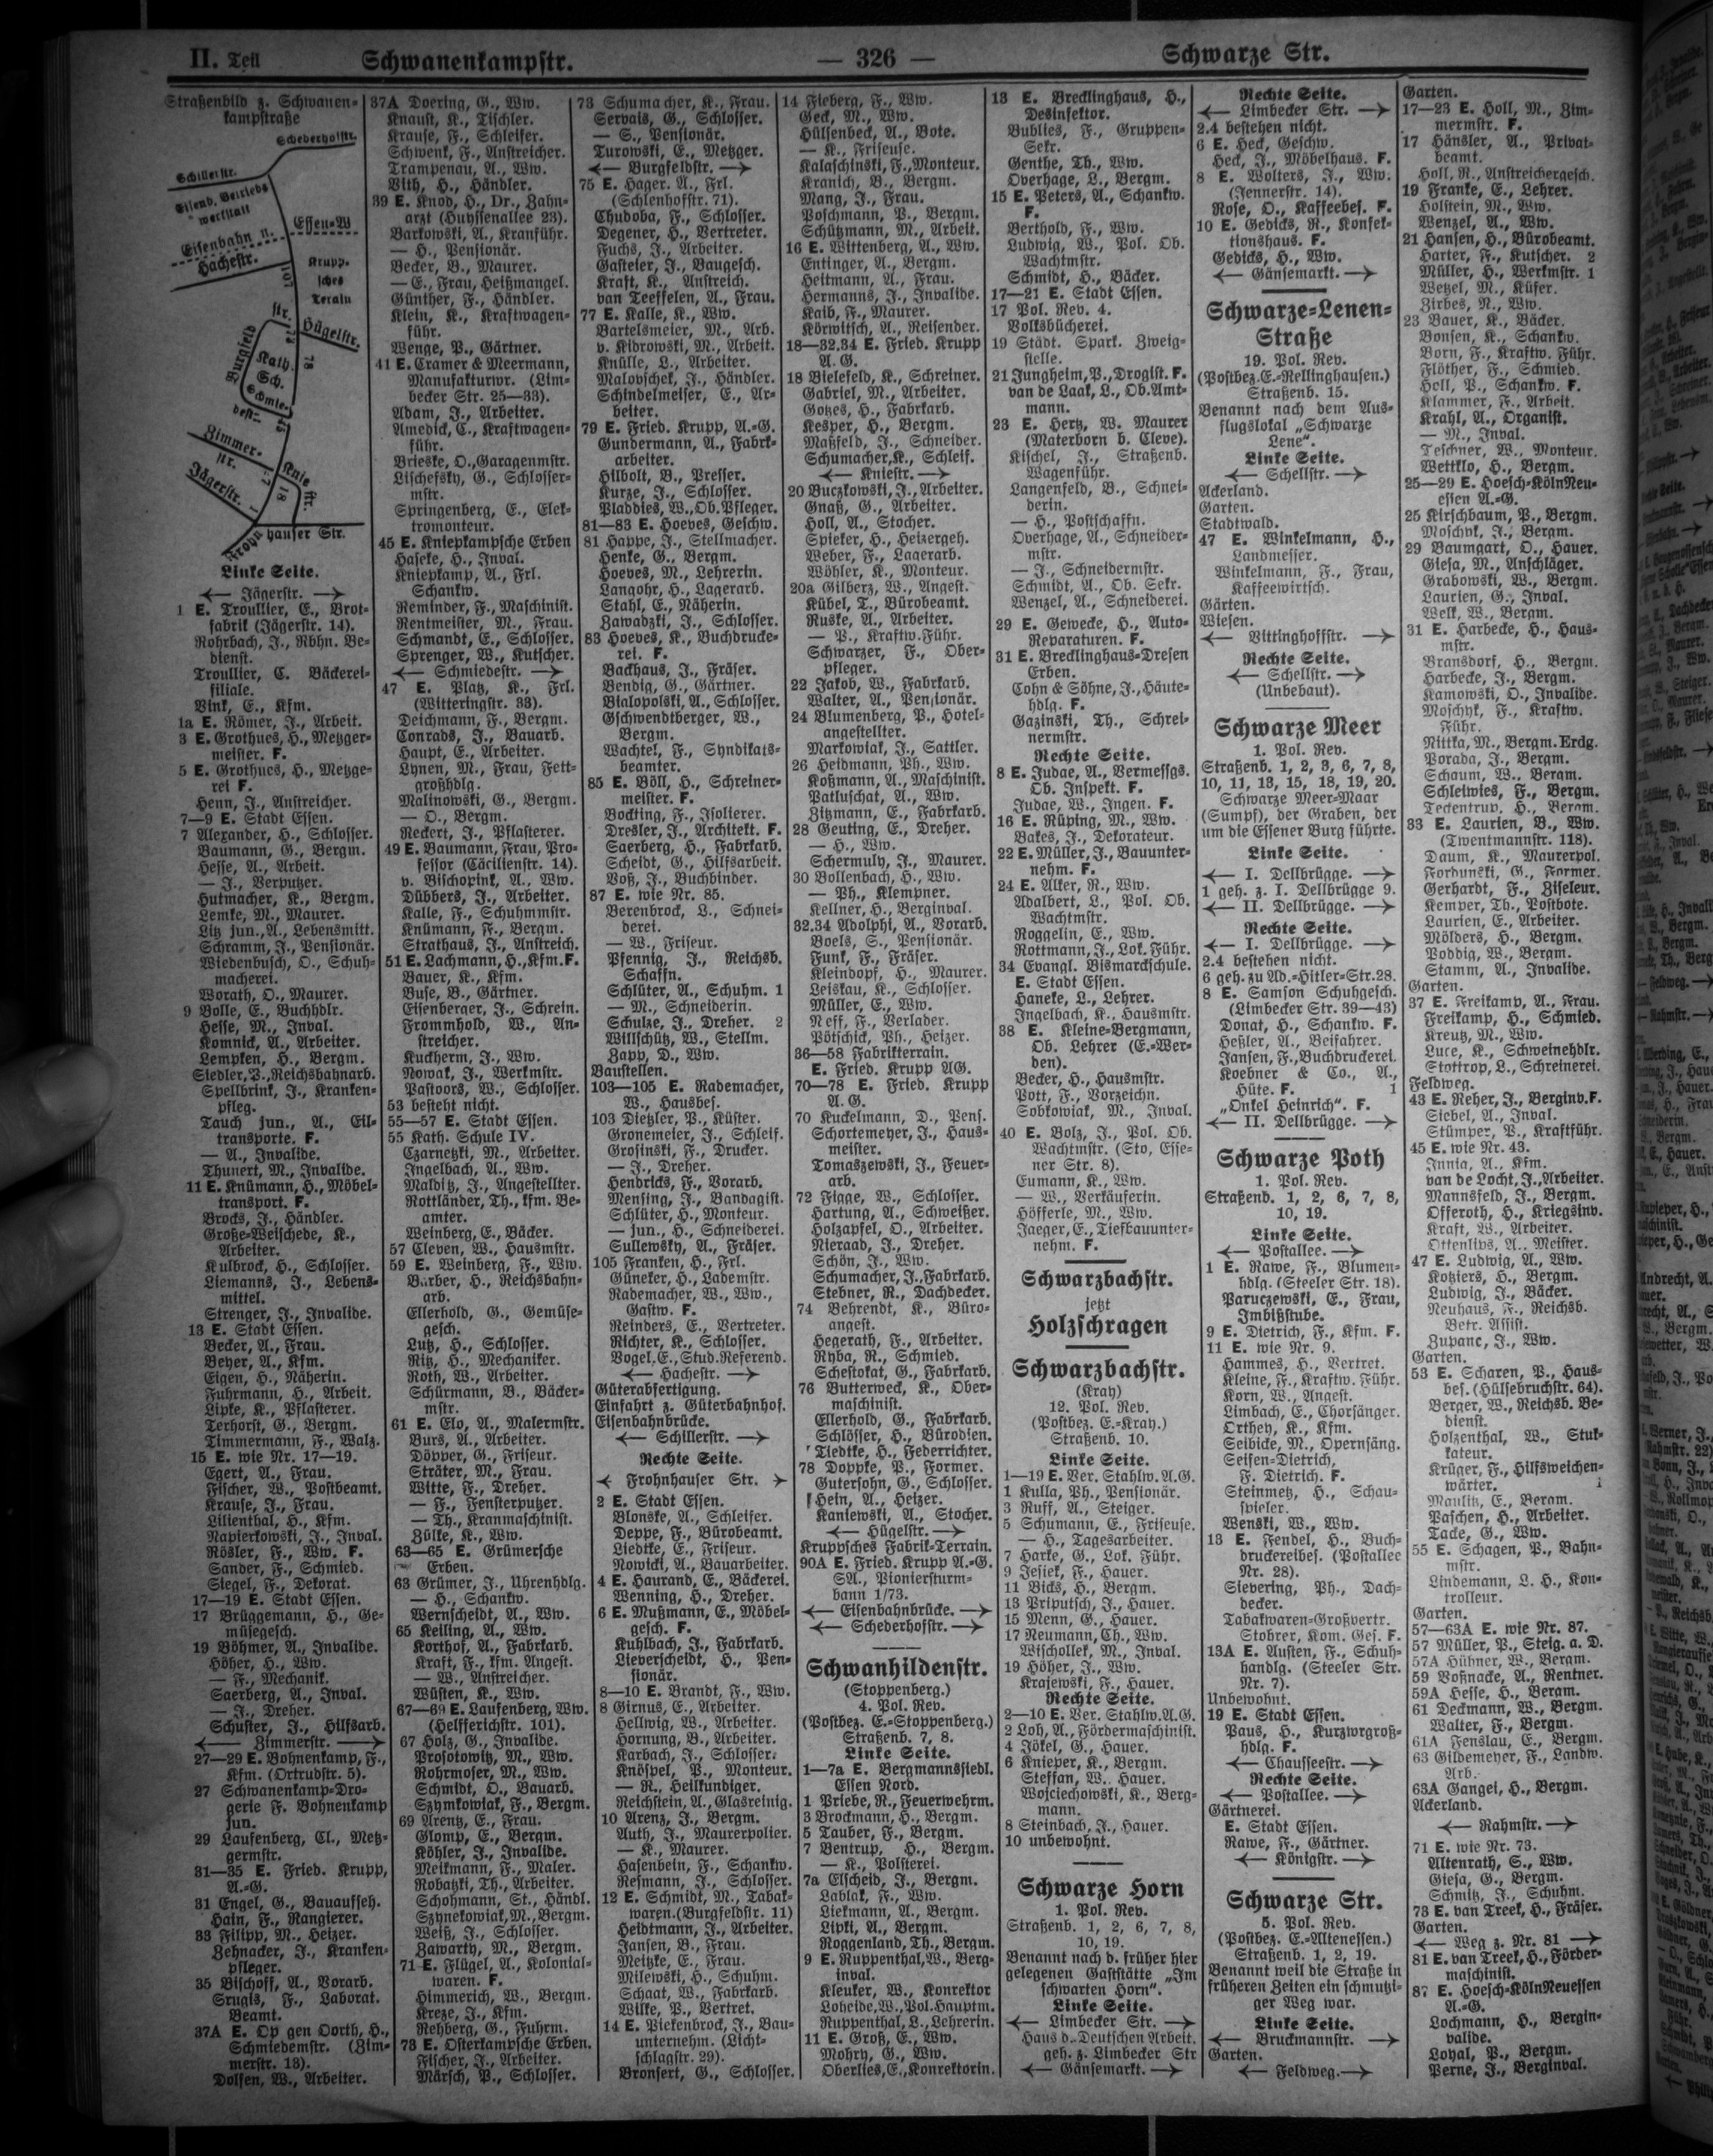 II. Teil
Schwanenkampstr.
— 326 —
Schwarze Str.
Straßenbild z. Schwanen=
kampstraße
Schederhofstr.
Schillerstr.
Eisenb. Betriebs
werkstatt
Essen=W
Eisenbahn u.
Hachestr.
Krupp=
sches
Terain
Hügelstr.
Burgfeld
str.
Kath.
Sch.
Schmie=
destr.
Zimmer=
str.
Knie
str.
Jägerstr.
Frohnhauser Str.
Linke Seite.
← Jägerstr. →
1 E. Troullier, E., Brot=
fabrik (Jägerstr. 14).
Rohrbach, J., Rbhn. Be=
dienst.
Troullier, C. Bäckerei=
filiale.
Vink, E., Kfm.
1a E. Römer, J., Arbeit.
3 E. Grothues, H., Metzger=
meister. F.
5 E. Grothues, H., Metzge=
rei F.
Henn, J., Anstreicher.
7—9 E. Stadt Essen.
7 Alexander, H., Schlosser.
Baumann, G., Bergm.
Hesse, A., Arbeit.
— J., Verputzer.
Hutmacher, K., Bergm.
Lemke, M., Maurer.
Litz jun., A., Lebensmitt.
Schramm, J., Pensionär.
Wiedenbusch, O., Schuh=
macherei.
Worath, O., Maurer.
9 Bolle, E., Buchhdlr.
Hesse, M., Inval.
Komnick, A., Arbeiter.
Lempken, H., Bergm.
Siedler, P., Reichsbahnarb.
Spellbrink, J., Kranken=
pfleg.
Tauch jun., A., Eil=
transporte. F.
— A., Invalide.
Thunert, M., Invalide.
11 E. Knümann, H., Möbel=
transport. F.
Brocks, J., Händler.
Große=Weischede, K.,
Arbeiter.
Kulbrock, H., Schlosser.
Liemanns, J., Lebens=
mittel.
Strenger, J., Invalide.
13 E. Stadt Essen.
Becker, A., Frau.
Beyer, A., Kfm.
Eigen, H., Näherin.
Fuhrmann, H., Arbeit.
Lipke, K., Pflasterer.
Terhorst, G., Bergm.
Timmermann, F., Walz.
15 E. wie Nr. 17—19.
Egert, A., Frau.
Fischer, W., Postbeamt.
Krause, J., Frau.
Lilienthal, H., Kfm.
Napierkowski, J., Inval.
Rösler, F., Ww. F.
Sander, F., Schmied.
Siegel, F., Dekorat.
17—19 E. Stadt Essen.
17 Brüggemann, H., Ge=
müsegesch.
19 Böhmer, A., Invalide.
Höher, H., Ww.
— F., Mechanik.
Saerberg, A., Inval.
— J., Dreher.
Schuster, J., Hilfsarb.
← Zimmerstr. →
27—29 E. Bohnenkamp, F.,
Kfm. (Ortrudstr. 5).
27 Schwanenkamp=Dro=
gerie F. Bohnenkamp
jun.
29 Laufenberg, Cl., Metz=
germstr.
31—35 E. Fried. Krupp,
A.=G.
31 Engel, G., Bauaufseh.
Hain, F., Rangierer.
33 Filipp, M., Heizer.
Zehnacker, J., Kranken=
pfleger.
35 Bischoff, A., Vorarb.
Srugis, F., Laborat.
Beamt.
37A E. Op gen Oorth, H.,
Schmiedemstr. (Zim=
merstr. 13).
Dolsen, W., Arbeiter.
37A Doering, G., Ww.
Knaust, K., Tischler.
Krause, F., Schleifer.
Schwenk, F., Anstreicher.
Trampenau, A., Ww.
Vith, H., Händler.
39 E. Knob, H., Dr., Zahn=
arzt (Huyssenallee 23).
Barkowski, A., Kranführ.
— H., Pensionär.
Becker, B., Maurer.
— E., Frau, Heißmangel.
Günther, F., Händler.
Klein, K., Kraftwagen=
führ.
Wenge, P., Gärtner.
41 E. Cramer & Meermann,
Manufakturwr. (Lim=
becker Str. 25—33).
Adam, J., Arbeiter.
Amedick, C., Kraftwagen=
führ.
Brieske, O., Garagenmstr.
Lischefsky, G., Schlosser=
mstr.
Springenberg, E., Elek=
tromonteur.
45 E. Kniepkampsche Erben
Haseke, H., Inval.
Kniepkamp, A., Frl.
Schankw.
Reminder, F., Maschinist.
Rentmeister, M., Frau.
Schmandt, E., Schlosser.
Sprenger, W., Kutscher.
← Schmiedestr. →
47 E. Platz, K., Frl.
(Witteringstr. 33).
Deichmann, F., Bergm.
Conrads, J., Bauarb.
Haupt, E., Arbeiter.
Lynen, M., Frau, Fett=
großhdlg.
Malinowski, G., Bergm.
— O., Bergm.
Reckert, J., Pflasterer.
49 E. Baumann, Frau, Pro=
fessor (Cäcilienstr. 14).
v. Bischopink, A., Ww.
Dübbers, J., Arbeiter.
Kalle, F., Schuhmmstr.
Knümann, F., Bergm.
Strathaus, J., Anstreich.
51 E. Lachmann, H., Kfm. F.
Bauer, K., Kfm.
Buse, B., Gärtner.
Eisenberger, J., Schrein.
Frommhold, W., An=
streicher.
Kuckherm, J., Ww.
Nowak, J., Werkmstr.
Pastoors, W., Schlosser.
53 besteht nicht.
55—57 E. Stadt Essen.
55 Kath. Schule IV.
Czarnetzki, M., Arbeiter.
Ingelbach, A., Ww.
Malditz, J., Angestellter.
Rottländer, Th., kfm. Be=
amter.
Weinberg, E., Bäcker.
57 Cleven, W., Hausmstr.
59 E. Weinberg, F., Ww.
Barber, H., Reichsbahn=
arb.
Ellerhold, G., Gemüse=
gesch.
Lutz, H., Schlosser.
Ritz, H., Mechaniker.
Roth, W., Arbeiter.
Schürmann, B., Bäcker=
mstr.
61 E. Elo, A., Malermstr.
Burs, A., Arbeiter.
Döpper, G., Friseur.
Sträter, M., Frau.
Witte, F., Dreher.
— F., Fensterputzer.
— Th., Kranmaschinist.
Zülke, K., Ww.
63—65 E. Grümersche
Erben.
63 Grümer, J., Uhrenhdlg.
— H., Schankw.
Wernscheidt, A., Ww.
65 Keiling, A., Ww.
Korthof, A., Fabrikarb.
Kraft, F., kfm. Angest.
— W., Anstreicher.
Wüsten, K., Ww.
67—69 E. Laufenberg, Ww.
(Helfferichstr. 101).
67 Holz, G., Invalide.
Prosotowitz, M., Ww.
Rohrmoser, M., Ww.
Schmidt, O., Bauarb.
Szymkowiak, F., Bergm.
69 Arentz, E., Frau.
Glomp, E., Bergm.
Köhler, J., Invalide.
Meikmann, F., Maler.
Robatzki, Th., Arbeiter.
Schohmann, St., Händl.
Szynekowiak, M., Bergm.
Weiß, J., Schlosser.
Zawarty, M., Bergm.
71 E. Flügel, A., Kolonial=
waren. F.
Himmerich, W., Bergm.
Kreze, J., Kfm.
Rehberg, G., Fuhrm.
73 E. Osterkampsche Erben.
Fischer, J., Arbeiter.
Märsch, P., Schlosser.
73 Schumacher, K., Frau.
Servais, G., Schlosser.
— S., Pensionär.
Turowski, E., Metzger.
← Burgfeldstr. →
75 E. Hager. A., Frl.
(Schlenhofstr. 71).
Chudoba, F., Schlosser.
Degener, H., Vertreter.
Fuchs, J., Arbeiter.
Gasteier, J., Baugesch.
Kraft, K., Anstreich.
van Teeffelen, A., Frau.
77 E. Kalle, K., Ww.
Bartelsmeier, M., Arb.
v. Kibrowski, M., Arbeit.
Knülle, L., Arbeiter.
Malovschek, J., Händler.
Schindelmeiser, E., Ar=
beiter.
79 E. Fried. Krupp, A.=G.
Gundermann, A., Fabrik=
arbeiter.
Hilbolt, B., Presser.
Kurze, J., Schlosser.
Pladdies, W., Ob. Pfleger.
81—83 E. Hoeves, Geschw.
81 Happe, J., Stellmacher.
Henke, G., Bergm.
Hoeves, M., Lehrerin.
Langohr, H., Lagerarb.
Stahl, E., Näherin.
Zawadzki, J., Schlosser.
83 Hoeves, K., Buchdrucke=
rei. F.
Backhaus, J., Fräser.
Bendig, G., Gärtner.
Bialopolski, A., Schlosser.
Gschwendtberger, W.,
Bergm.
Wachtel, F., Syndikats=
beamter.
85 E. Böll, H., Schreiner=
meister. F.
Bocking, F., Isolierer.
Dresler, J., Architekt. F.
Saerberg, H., Fabrikarb.
Scheidt, G., Hilfsarbeit.
Voß, J., Buchbinder.
87 E. wie Nr. 85.
Berenbrock, L., Schnei=
derei.
— W., Friseur.
Pfennig, J., Reichsb.
Schaffn.
Schlüter, A., Schuhm. 1
— M., Schneiderin.
Schulze, J., Dreher. 2
Willschütz, W., Stellm.
Zapp, D., Ww.
Baustellen.
103—105 E. Rademacher,
W., Hausbes.
103 Dietzler, P., Küster.
Gronemeier, J., Schleif.
Grosinski, F., Drucker.
— J., Dreher.
Hendricks, F., Vorarb.
Mensing, J., Bandagist.
Schlüter, H., Monteur.
— jun., H., Schneiderei.
Sullewsky, A., Fräser.
105 Franken, H., Frl.
Güneker, H., Lademstr.
Rademacher, W., Ww.,
Gastw. F.
Reinders, E., Vertreter.
Richter, K., Schlosser.
Vogel, E., Stud. Referend.
← Hachestr. →
Güterabfertigung.
Einfahrt z. Güterbahnhof.
Eisenbahnbrücke.
← Schillerstr. →
Rechte Seite.
← Frohnhauser Str. →
2 E. Stadt Essen.
Blonske, A., Schleifer.
Deppe, F., Bürobeamt.
Liedtke, E., Friseur.
Nowicki, A., Bauarbeiter.
4 E. Haurand, E., Bäckerei.
Wenning, H., Dreher.
6 E. Mußmann, E., Möbel=
gesch. F.
Kuhlbach, J., Fabrikarb.
Lieverscheidt, H., Pen=
sionär.
8—10 E. Brandt, F., Ww.
8 Girnus, E., Arbeiter.
Hellwig, W., Arbeiter.
Hornung, B., Arbeiter.
Karbach, J., Schlosser.
Knöspel, P., Monteur.
— R., Heilkundiger.
Reichstein, A., Glasreinig.
10 Arenz, J., Bergm.
Auth, J., Maurerpolier.
— K., Maurer.
Hasenbein, F., Schankw.
Resmann, J., Schlosser.
12 E. Schmidt, M., Tabak=
waren. (Burgfeldstr. 11)
Heidtmann, J., Arbeiter.
Jansen, B., Frau.
Meitzke, E., Frau.
Milewski, H., Schuhm.
Schaat, W., Fabrikarb.
Wilke, P., Vertret.
14 E. Piekenbrock, J., Bau=
unternehm. (Licht=
schlagstr. 29).
Bronsert, G., Schlosser.
14 Fieberg, F., Ww.
Geck, M., Ww.
Hülsenbeck, A., Bote.
— K., Friseuse.
Kalaschinski, F., Monteur.
Kranich, B., Bergm.
Mang, J., Frau.
Poschmann, P., Bergm.
Schützmann, M., Arbeit.
16 E. Wittenberg, A., Ww.
Entinger, A., Bergm.
Heitmann, A., Frau.
Hermanns, J., Invalide.
Kaib, F., Maurer.
Körwitsch, A., Reisender.
18—32.34 E. Fried. Krupp
A. G.
18 Bielefeld, K., Schreiner.
Gabriel, M., Arbeiter.
Gokes, H., Fabrikarb.
Kesper, H., Bergm.
Maßfeld, J., Schneider.
Schumacher, K., Schleif.
← Kniestr. →
20 Buczkowski, J., Arbeiter.
Gnaß, G., Arbeiter.
Holl, A., Stocher.
Spieker, H., Heizergeh.
Weber, F., Lagerarb.
Wöhler, K., Monteur.
20a Gilberz, W., Angest.
Kübel, T., Bürobeamt.
Ruske, A., Arbeiter.
— P., Kraftw. Führ.
Schwarzer, F., Ober=
pfleger.
22 Jakob, W., Fabrikarb.
Walter, A., Pensionär.
24 Blumenberg, P., Hotel=
angestellter.
Markowiak, J., Sattler.
26 Heidmann, Ph., Ww.
Koßmann, A., Maschinist.
Patluschat, A., Ww.
Zitzmann, E., Fabrikarb.
28 Geuting, E., Dreher.
— H., Ww.
Schermuly, J., Maurer.
30 Bollenbach, H., Ww.
— Ph., Klempner.
Kellner, H., Berginval.
32.34 Adolphi, A., Vorarb.
Boels, S., Pensionär.
Funk, F., Fräser.
Kleindopf, H., Maurer.
Leiskau, K., Schlosser.
Müller, E., Ww.
Neff, F., Verlader.
Pötschick, Ph., Heizer.
36—58 Fabrikterrain.
E. Fried. Krupp AG.
70—78 E. Fried. Krupp
A. G.
70 Kuckelmann, D., Pens.
Schortemeyer, J., Haus=
meister.
Tomaszewski, J., Feuer=
arb.
72 Figge, W., Schlosser.
Hartung, A., Schweißer.
Holzapfel, O., Arbeiter.
Nieraad, J., Dreher.
Schön, J., Ww.
Schumacher, J., Fabrikarb.
Stebner, R., Dachdecker.
74 Behrendt, K., Büro=
angest.
Hegerath, F., Arbeiter.
Ryba, R., Schmied.
Schestokat, G., Fabrikarb.
76 Butterweck, K., Ober=
maschinist.
Ellerhold, G., Fabrikarb.
Schlösser, H., Bürodien.
Tiedtke, H., Federrichter.
78 Doppke, P., Former.
Gutersohn, G., Schlosser.
Hein, A., Heizer.
Kaniewski, A., Stocher.
← Hügelstr. →
Kruppsches Fabrik=Terrain.
90A E. Fried. Krupp A.=G.
SA., Pioniersturm=
bann 1/73.
← Eisenbahnbrücke. →
← Schederhofstr. →
Schwanhildenstr.
(Stoppenberg.)
4. Pol. Rev.
(Postbez. E.=Stoppenberg.)
Straßenb. 7, 8.
Linke Seite.
1—7a E. Bergmannssiedl.
Essen Nord.
1 Priebe, R., Feuerwehrm.
3 Brockmann, H., Bergm.
5 Tauber, F., Bergm.
7 Bentrup, H., Bergm.
— K., Polsterei.
7a Elscheid, J., Bergm.
Lablak, F., Ww.
Liekmann, A., Bergm.
Lipki, A., Bergm.
Roggenland, Th., Bergm.
9 E. Ruppenthal, W., Berg=
inval.
Kleuker, W., Konrektor
Loheide, W., Pol. Hauptm.
Ruppenthal, L., Lehrerin.
11 E. Groß, E., Ww.
Mohry, G., Ww.
Oberlies, E., Konrektorin.
13 E. Brecklinghaus, H.,
Desinfektor.
Bublies, F., Gruppen=
Sekr.
Genthe, Th., Ww.
Overhage, L., Bergm.
15 E. Peters, A., Schankw.
F.
Berthold, F., Ww.
Ludwig, W., Pol. Ob.
Wachtmstr.
Schmidt, H., Bäcker.
17—21 E. Stadt Essen.
17 Pol. Rev. 4.
Volksbücherei.
19 Städt. Spark. Zweig=
stelle.
21 Jungheim, P., Drogist. F.
van de Laak, L., Ob. Amt=
mann.
23 E. Hertz, W. Maurer
(Materborn b. Cleve).
Kischel, J., Straßenb.
Wagenführ.
Langenfeld, B., Schnei=
derin.
— H., Postschaffn.
Overhage, A., Schneider=
mstr.
— J., Schneidermstr.
Schmidt, A., Ob. Sekr.
Wenzel, A., Schneiderei.
29 E. Gewecke, H., Auto=
Reparaturen. F.
31 E. Brecklinghaus=Dresen
Erben.
Cohn & Söhne, J., Häute=
hdlg. F.
Gazinski, Th., Schrei=
nermstr.
Rechte Seite.
8 E. Judae, A., Vermessgs.
Ob. Inspekt. F.
Judae, W., Ingen. F.
16 E. Rüping, M., Ww.
Bakes, J., Dekorateur.
22 E. Müller, J., Bauunter=
nehm. F.
24 E. Alker, R., Ww.
Adalbert, L., Pol. Ob.
Wachtmstr.
Roggelin, E., Ww.
Rottmann, J., Lok. Führ.
34 Evangl. Bismarckschule.
E. Stadt Essen.
Haneke, L., Lehrer.
Ingelbach, K., Hausmstr.
38 E. Kleine=Bergmann,
Ob. Lehrer (E.=Wer=
den).
Becker, H., Hausmstr.
Pott, F., Vorzeichn.
Sobkowiak, M., Inval.
40 E. Bolz, J., Pol. Ob.
Wachtmstr. (Sto, Esse=
ner Str. 8).
Eumann, K., Ww.
— W., Verkäuferin.
Höfferle, M., Ww.
Jaeger, E., Tiefbauunter=
nehm. F.
Schwarzbachstr.
jetzt
Holzschragen
Schwarzbachstr.
(Kray)
12. Pol. Rev.
(Postbez. E.=Kray.)
Straßenb. 10.
Linke Seite.
1—19 E. Ver. Stahlw. A.G.
1 Kulla, Ph., Pensionär.
3 Ruff, A., Steiger.
5 Schumann, E., Friseuse.
— H., Tagesarbeiter.
7 Harke, G., Lok. Führ.
9 Jesiek, F., Hauer.
11 Bicks, H., Bergm.
13 Priputsch, J., Hauer.
15 Menn, G., Hauer.
17 Neumann, Ch., Ww.
Wischollek, M., Inval.
19 Höher, J., Ww.
Krajewski, F., Hauer.
Rechte Seite.
2—10 E. Ver. Stahlw. A.G.
2 Loh, A., Fördermaschinist.
4 Jökel, G., Hauer.
6 Knieper, K., Bergm.
Steffan, W., Hauer.
Wojciechowski, K., Berg=
mann.
8 Steinbach, J., Hauer.
10 unbewohnt.
Schwarze Horn
1. Pol. Rev.
Straßenb. 1, 2, 6, 7, 8,
10, 19.
Benannt nach d. früher hier
gelegenen Gaststätte „Im
schwarten Horn“.
Linke Seite.
← Limbecker Str. →
Haus d. Deutschen Arbeit.
geh. z. Limbecker Str
← Gänsemarkt. →
Rechte Seite.
← Limbecker Str. →
2.4 bestehen nicht.
6 E. Heck, Geschw.
Heck, J., Möbelhaus. F.
8 E. Wolters, J., Ww.
(Jennerstr. 14).
Rose, O., Kaffeebes. F.
10 E. Gedicks, R., Konfek=
tionshaus. F.
Gedicks, H., Ww.
← Gänsemarkt. →
Schwarze=Lenen=
Straße
19. Pol. Rev.
(Postbez. E.=Rellinghausen.)
Straßenb. 15.
Benannt nach dem Aus=
flugslokal „Schwarze
Lene“.
Linke Seite.
← Schellstr. →
Ackerland.
Garten.
Stadtwald.
47 E. Winkelmann, H.,
Landmesser.
Winkelmann, F., Frau,
Kaffeewirtsch.
Gärten.
Wiesen.
← Vittinghoffstr. →
Rechte Seite.
← Schellstr. →
(Unbebaut).
Schwarze Meer
1. Pol. Rev.
Straßenb. 1, 2, 3, 6, 7, 8,
10, 11, 13, 15, 18, 19, 20.
Schwarze Meer=Maar
(Sumpf), der Graben, der
um die Essener Burg führte.
Linke Seite.
← I. Dellbrügge. →
1 geh. z. I. Dellbrügge 9.
← II. Dellbrügge. →
Rechte Seite.
← I. Dellbrügge. →
2.4 bestehen nicht.
6 geh. zu Ad.=Hitler=Str. 28.
8 E. Samson Schuhgesch.
(Limbecker Str. 39—43)
Donat, H., Schankw. F.
Heßler, A., Beifahrer.
Jansen, F., Buchdruckerei.
Koebner & Co., A.,
Hüte. F. 1
„Onkel Heinrich“. F.
← II. Dellbrügge. →
Schwarze Poth
1. Pol. Rev.
Straßenb. 1, 2, 6, 7, 8,
10, 19.
Linke Seite.
← Postallee. →
1 E. Rawe, F., Blumen=
hdlg. (Steeler Str. 18).
Paruczewski, E., Frau,
Imbißstube.
9 E. Dietrich, F., Kfm. F.
11 E. wie Nr. 9.
Hammes, H., Vertret.
Kleine, F., Kraftw. Führ.
Korn, W., Angest.
Limbach, E., Chorsänger.
Orthey, K., Kfm.
Seibicke, M., Opernsäng.
Seifen=Dietrich,
F. Dietrich. F.
Steinmetz, H., Schau=
spieler.
Wenski, W., Ww.
13 E. Fendel, H., Buch=
druckereibes. (Postallee
Nr. 28).
Sievering, Ph., Dach=
decker.
Tabakwaren=Großvertr.
Stohrer, Kom. Ges. F.
13A E. Austen, F., Schuh=
handlg. (Steeler Str.
Nr. 7).
Unbewohnt.
19 E. Stadt Essen.
Paus, H., Kurzwrgroß=
hdlg. F.
← Chausseestr. →
Rechte Seite.
← Postallee. →
Gärtnerei.
E. Stadt Essen.
Rawe, F., Gärtner.
← Königstr. →
Schwarze Str.
5. Pol. Rev.
(Postbez. E.=Altenessen.)
Straßenb. 1, 2, 19.
Benannt weil die Straße in
früheren Zeiten ein schmutzi=
ger Weg war.
Linke Seite.
← Bruckmannstr. →
Garten.
← Feldweg. →
Garten.
17—23 E. Holl, M., Zim=
mermstr. F.
17 Hänsler, A., Privat=
beamt.
Holl, R., Anstreichergesch.
19 Franke, E., Lehrer.
Holstein, M., Ww.
Wenzel, A., Ww.
21 Hansen, H., Bürobeamt.
Harter, F., Kutscher. 2
Müller, H., Werkmstr. 1
Wetzel, M., Küfer.
Zirbes, N., Ww.
23 Bauer, K., Bäcker.
Bonsen, K., Schankw.
Born, F., Kraftw. Führ.
Flöther, F., Schmied.
Holl, P., Schankw. F.
Klammer, F., Arbeit.
Krahl, A., Organist.
— M., Inval.
Teschner, W., Monteur.
Wettklo, H., Bergm.
25—29 E. Hoesch=KölnNeu=
essen A.=G.
25 Kirschbaum, P., Bergm.
Moschyk, J., Bergm.
29 Baumgart, O., Hauer.
Giesa, M., Anschläger.
Grabowski, W., Bergm.
Laurien, G., Inval.
Welk, W., Bergm.
31 E. Harbecke, H., Haus=
mstr.
Bransdorf, H., Bergm.
Harbecke, J., Bergm.
Kamowski, O., Invalide.
Moschyk, F., Kraftw.
Führ.
Nittka, M., Bergm. Erdg.
Porada, J., Bergm.
Schaum, W., Bergm.
Schleiwies, F., Bergm.
Teckentrup, H., Bergm.
33 E. Laurien, B., Ww.
(Twentmannstr. 118).
Daum, K., Maurerpol.
Forbunski, G., Former.
Gerhardt, F., Ziseleur.
Kemper, Th., Postbote.
Laurien, E., Arbeiter.
Mölders, H., Bergm.
Poddig, W., Bergm.
Stamm, A., Invalide.
Garten.
37 E. Freikamp, A., Frau.
Freikamp, H., Schmied.
Kreutz, M., Ww.
Luce, K., Schweinehdlr.
Stottrop, L., Schreinerei.
Feldweg.
43 E. Reher, J., Berginv. F.
Siebel, A., Inval.
Stümper, P., Kraftführ.
45 E. wie Nr. 43.
Innia, A., Kfm.
van de Locht, J., Arbeiter.
Mannsfeld, J., Bergm.
Offeroth, H., Kriegsinv.
Kraft, W., Arbeiter.
Ottenlips, A., Meister.
47 E. Ludwig, A., Ww.
Kotziers, H., Bergm.
Ludwig, J., Bäcker.
Neuhaus, F., Reichsb.
Betr. Assist.
Zupanc, J., Ww.
Garten.
53 E. Scharen, P., Haus=
bes. (Hülsebruchstr. 64).
Berger, W., Reichsb. Be=
dienst.
Holzenthal, W., Stuk=
kateur.
Krüger, F., Hilfsweichen=
wärter. 1
Maulitz, E., Bergm.
Paschen, H., Arbeiter.
Tacke, G., Ww.
55 E. Schagen, P., Bahn=
mstr.
Lindemann, L. H., Kon=
trolleur.
Garten.
57—63A E. wie Nr. 87.
57 Müller, P., Steig. a. D.
57A Hübner, W., Bergm.
59 Voßnacke, A., Rentner.
59A Hesse, H., Bergm.
61 Deckmann, W., Bergm.
Walter, F., Bergm.
61A Fenslau, E., Bergm.
63 Gildemeyer, F., Landw.
Arb.
63A Gangei, H., Bergm.
Ackerland.
← Rahmstr. →
71 E. wie Nr. 73.
Altenrath, S., Ww.
Giesa, G., Bergm.
Schmitz, J., Schuhm.
73 E. van Treek, H., Fräser.
Garten.
← Weg z. Nr. 81 →
81 E. van Treek, H., Förder=
maschinist.
87 E. Hoesch=KölnNeuessen
A.=G.
Lochmann, H., Bergin=
valide.
Loyal, P., Bergm.
Perne, J., Berginval.